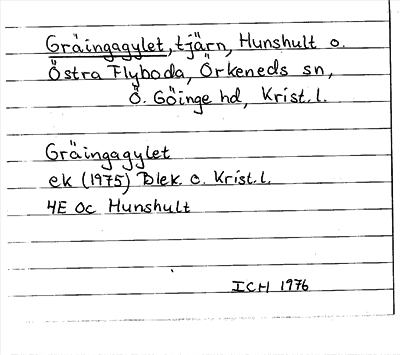 Gräingagylet, tjärn, Hunshult o.
Östra Flyboda, Örkeneds sn,
Ö. Göinge hd, Krist. l.
Gräingagylet
ek (1975) Blek. o. Krist. l.
4E Oc Hunshult
ICH 1976